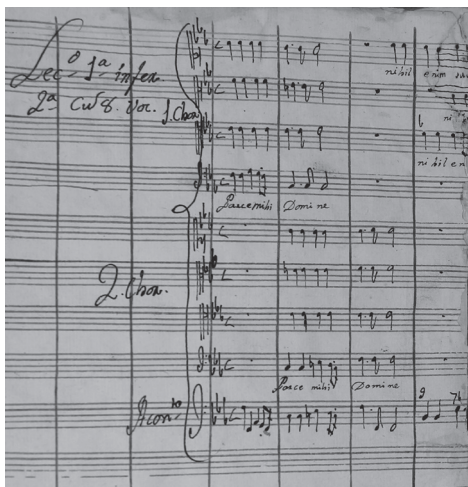 Lecº 1ª infer.
2ª Cu 8. Voc. 1. Chor.
nihil enim su
ni
nihil en
Parce mihi Domine
2. Chor.
Parce mihi Domine
9 7